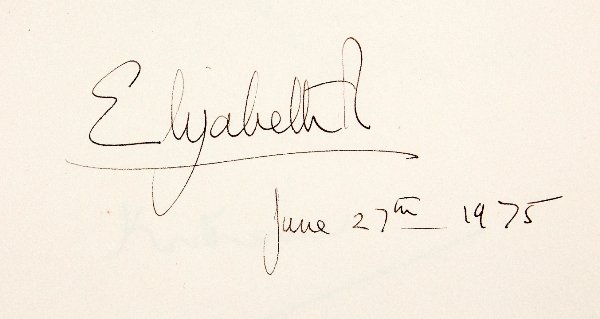 Elizabeth R
June 27th 1975